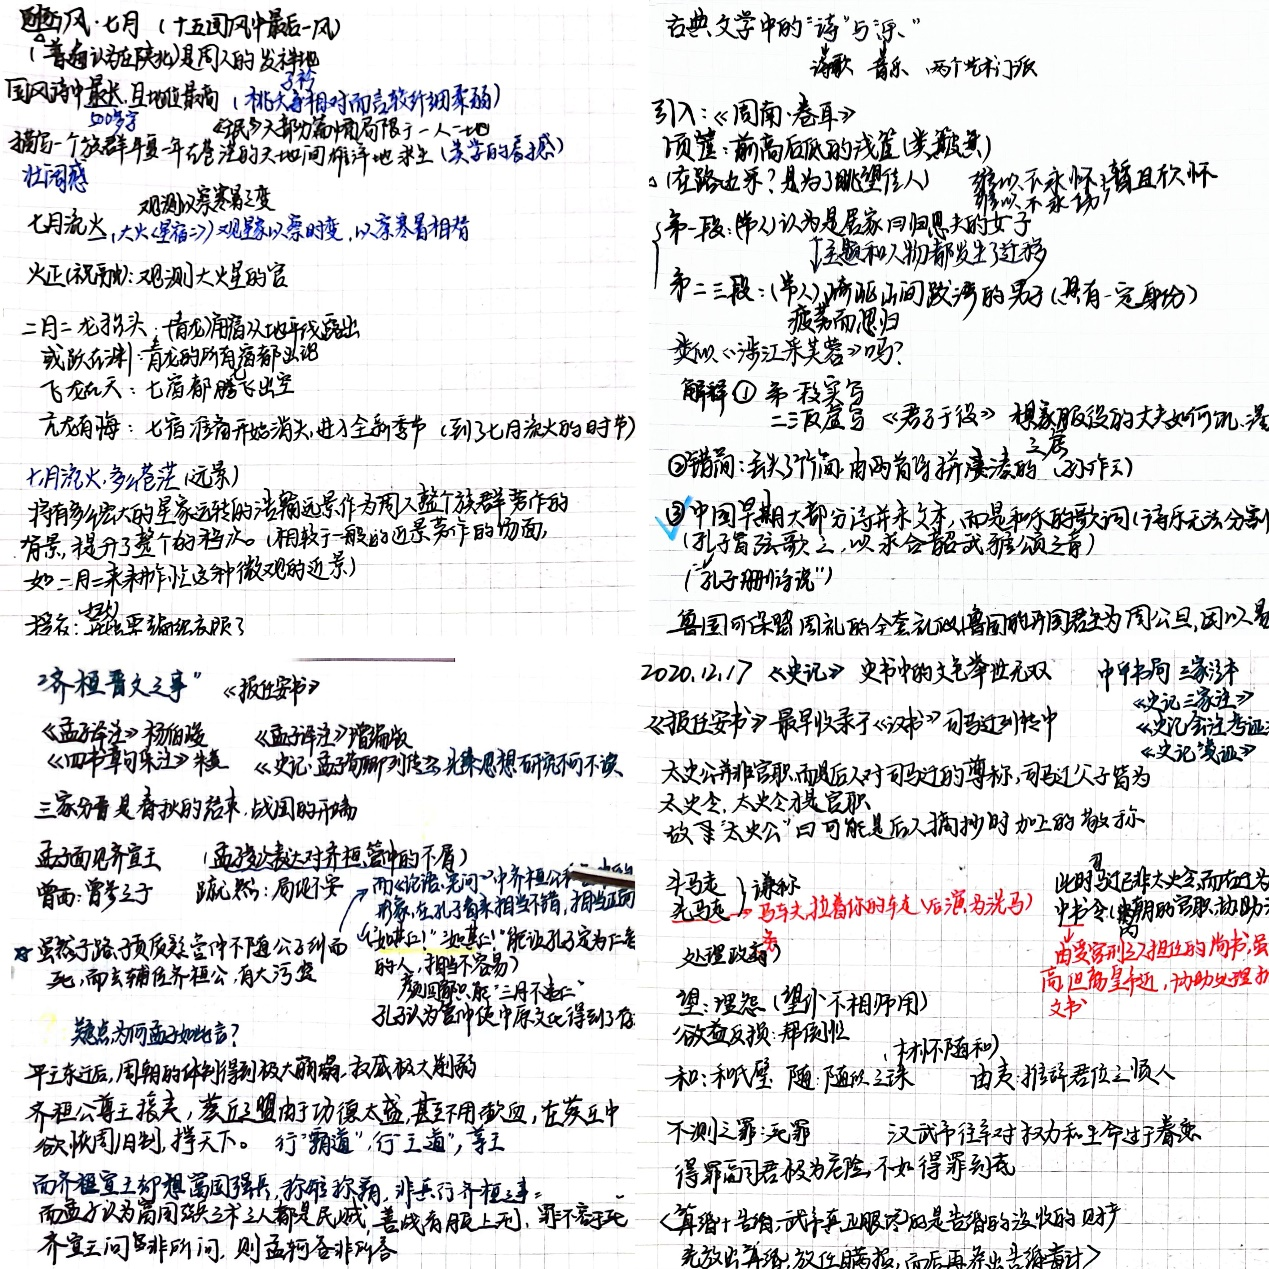 豳风·七月（十五国风中最后一风）
（普遍认为在陕北）是周人的发祥地
国风诗中最长，且地位最高（桃夭子衿相对而言较纤细柔弱）
500多字 《氓》大部分篇幅局限于一人一地
描写一个族群年复一年在苍茫的天地间雄浑地求生（美学的
壮阔感
观测以察寒暑之变
七月流火（大火（星宿二））观星象以察时变，以察寒暑相替
火正（祝融）：观测大火星的官
二月二 龙抬头：青龙角宿从地平线露出
或跃在渊：青龙的所有宿都出现
飞龙在天：七宿都腾飞出空
亢龙有悔：七宿准备开始消失，进入全新季节（到了七月流火的时节）
七月流火，多么苍茫（远景）
将有多么宏大的星象运转的浩瀚远景作为周人整个族群劳作的
背景，提升了整个的档次。（相较于一般的近景劳作的场面，
如二月二来耕作忙这种微观的近景）
授衣：要编织衣服了
古典文学中的“诗”与“乐”
诗歌 音乐 两个艺术门派
引入：《周南·卷耳》
顷筐：前高后低的浅筐（类簸箕）
（在路边采？是为了眺望佳人） 维以不永怀：暂且欣怀
维以不永伤
第一段：（常人）认为是居家回归思夫的女子
主题和人物都发生了迁移
第二三段：（常人）崎岖山间跋涉的男子（具有一定身份）
疲劳而思归
类似《涉江采芙蓉》吗？
解释① 第一段实写
二三段虚写 《君子于役》 想象服役的丈夫如何饥、渴
三层
②错简：丢失了竹简，由两首诗拼凑的（孙作云）
③中国早期大部分诗并未文本，而是和乐的歌词（诗乐无法分割）
（孔子皆弦歌之，以求合韶武雅颂之音）
（“孔子删诗说”）
鲁国可保留周礼的全套礼仪，鲁国的开国君主为周公旦，因以
“齐桓晋文之事” 《报任安书》
《孟子译注》杨伯峻 《孟子译注》增编版
《四书章句集注》朱熹 《史记·孟子荀卿列传》 思想研究不可不读
三家分晋是春秋的结束，战国的开端
孟子面见齐宣王 （孟子多次表达对齐桓、管仲的不屑）
曾西：曾参之子 蹴然：局促不安
而《论语·宪问》中齐桓公和
形象，在孔子看来相当不错，相当正面
虽然子路、子贡反疑管仲不随公子纠而
死，而去辅佐齐桓公，有大污点
（“如其仁！”“如其仁！”能让孔子定为仁者
的人，相当不容易）
颜回都只能“三月不违仁”
孔子认为管仲使中原文化得到了存
疑点：为何孟子如此言？
平王东迁后，周朝的体制得到极大崩塌，权威极大削弱
齐桓公尊王攘夷，葵丘之盟由于功德太盛，甚至不用歃血，在葵丘中
欲恢周旧制，捍天下。 行“霸道”，行“王道”，尊王
而齐桓宣王却想富国强兵，称雄称霸，非真行齐桓之事
而孟子认为富国强兵之术之人都是民贼，善战者服上刑，罪不容于死
齐宣王问皆非所问，则孟轲答非所答
2020.12.17 《史记》 史书中的文色举世无双 中华书局 三家注本
《史记三家注》
《报任安书》最早收录于《汉书》司马迁列传中 《史记会注考证》
《史记笺证》
太史公并非官职，而是后人对司马迁的尊称，司马迁父子皆为
太史令，太史令才是官职
故下“太史公”曰可能是后人摘抄时加上的敬称
牛马走
先马走 ｝谦称 → 马车夫，拉着你的车走（后演为洗马）
此时司马迁已非太史令，而在迁为
中书令（内朝的官职，协助
由受宫刑之人担任的尚书，虽
高，但离皇帝近，协助处理
文书
处理政务）
望：埋怨（望仆不相师用）
欲益反损：帮倒忙
（才怀随和）
和：和氏璧 随：随侯之珠 由夷：推辞君位之贤人
不测之罪：死罪 汉武帝往年对权力和生命过于眷恋
得罪而同君极为危险，不如得罪到底
〈算缗+告缗：武帝真正眼图的是告缗的没收的财产
先放出算缗，放任瞒报，而后再养出告缗者计〉